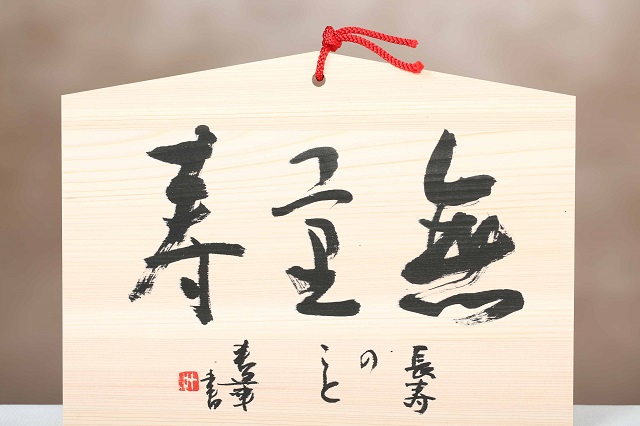 無量寿
長寿
の
こと
書